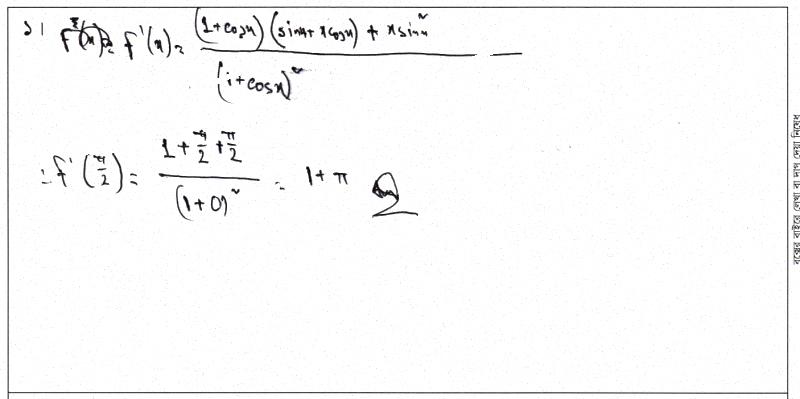 ১। f'(x) = ((1+cosx)(sinx + xcosx) + xsin²x) / (1+cosx)²
∴ f'(π/2) = (1 + π/2 + π/2) / (1+0)² = 1 + π Ans
বক্সের বাইরে লেখা বা দাগ দেয়া নিষেধ